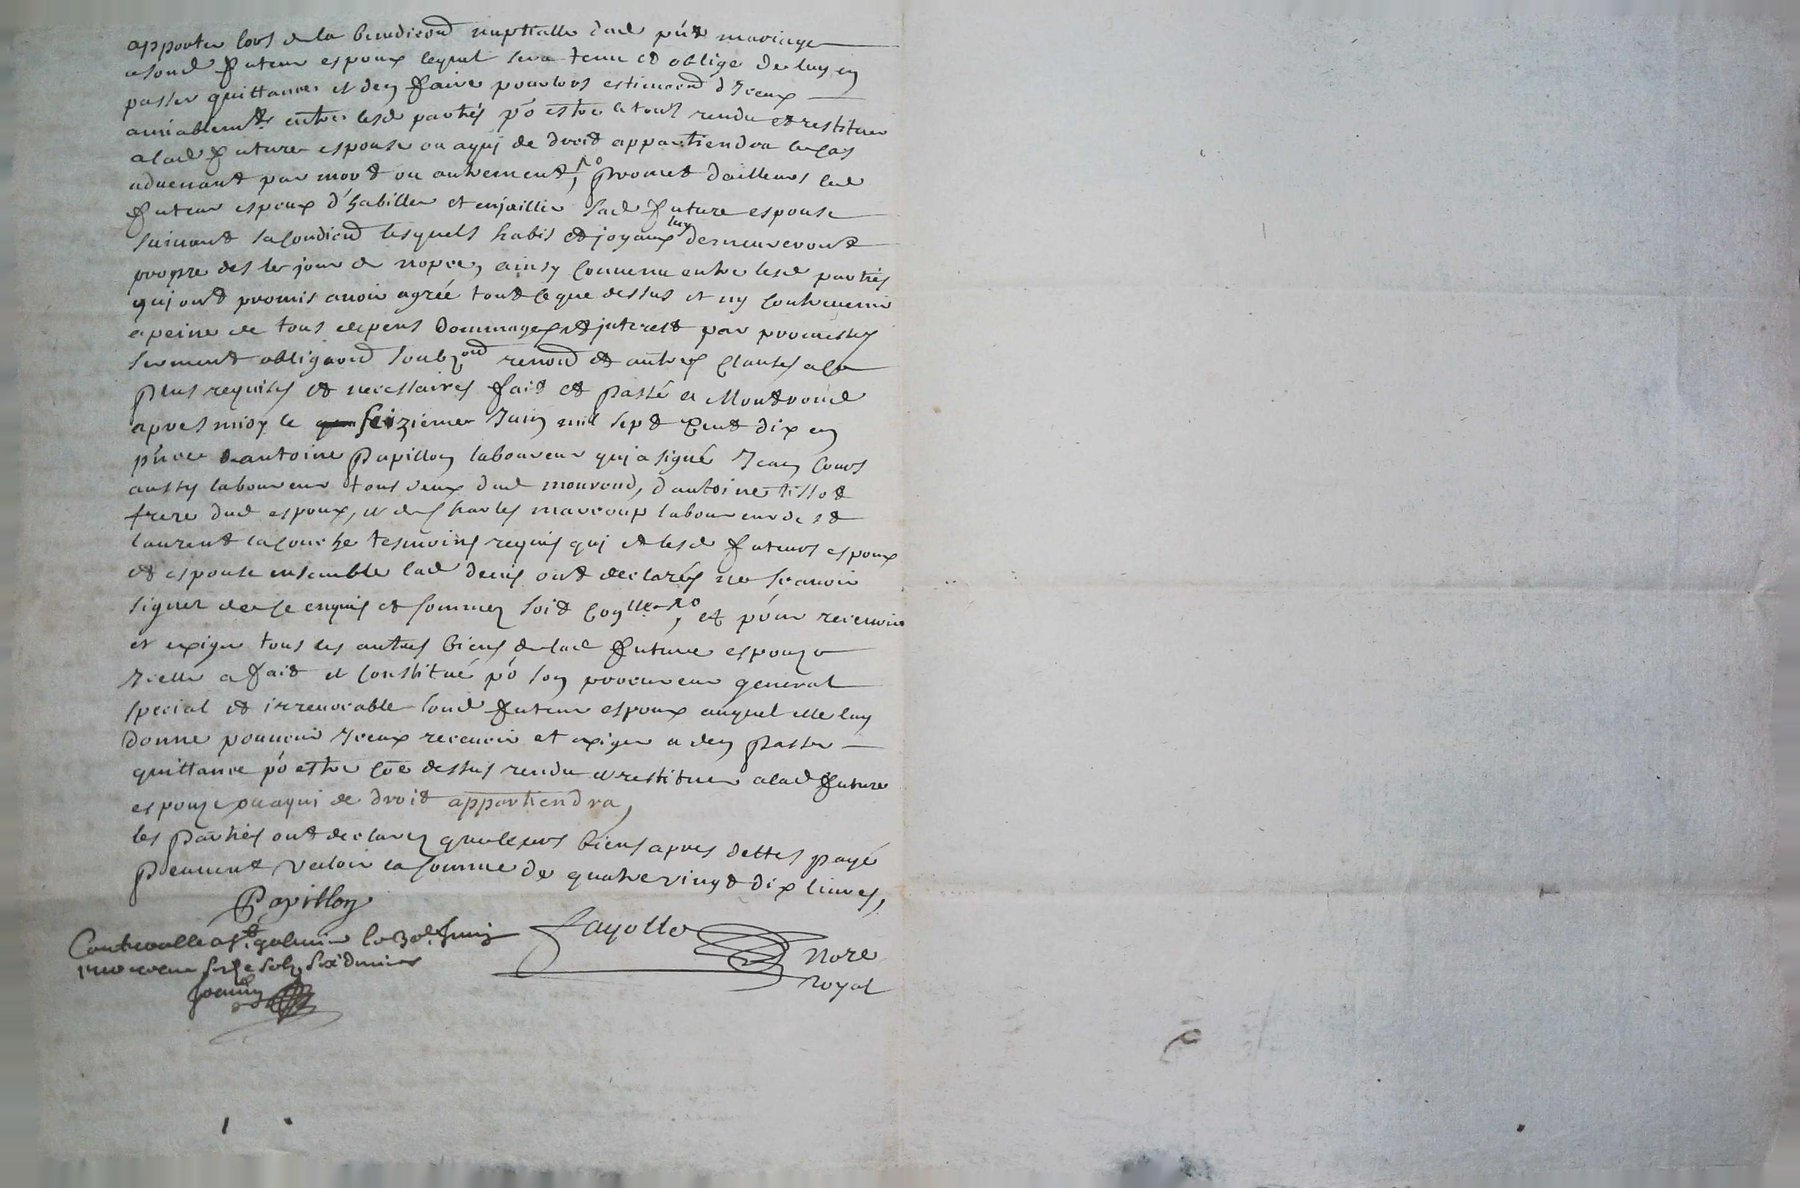 apporter lors de la benedicond nuptialle dud pñt mariage
a sond futeur espoux lequel sera tenu et obligé de luy en
passer quittance et den faire pour lors estimaond d'Iceux
amiablemt entre lesd partiés po estre le tout rendu et restituer
a lad future espouse ou a qui de droit appartiendra le cas
advenant par mort ou autrement, promet d'ailleurs led
futeur espoux d'habiller et enjoillier sad future espouse
suivant sa condiond lesquels habis et joyaux luy demeureront
propre des le jour de nopces, ainsy convenu entre lesd partiés
qui ont promis avoir agréé tout ce que dessus et ny contrevenir
a peine de tous depens dommages et interest par promesses
serment obligaond soubzond renond et autres clauses a ce
plus requises et necessaires fait et passé a Montrond
apres midy le seizieme Juin mil sept cent dix en
pñce d'antoine Papillon laboureur qui a signé Jean Cours
aussy laboureur tous deux dud mourond, d'antoine tissot
frere dud espoux, et de charles marcoup laboureur de st
laurent la conche tesmoins requis qui et lesd futeurs espoux
et espouse ensemble lad denis ont declarés ne scavoir
signer de ce enquis et sommez soit conllé, et pour recevoir
et exiger tous les autres biens de lad future espouze
Icelle a fait et constitué po son procureur general
special et irrevocable sond futeur espoux auquel elle luy
donne pouvoir Iceux recevoir et exiger a den passer
quittance po estre coe dessus rendu et restituer a lad future
espouze ou a qui de droit appartiendra,
les partiés ont declarez que leurs biens apres dettes payé
peuvent valoir la somme de quatre vingt dix livres,
Papillon
Controollé a st galmier le 30e Juin
1710 receu sols six deniers
fayolle
Nore
royal